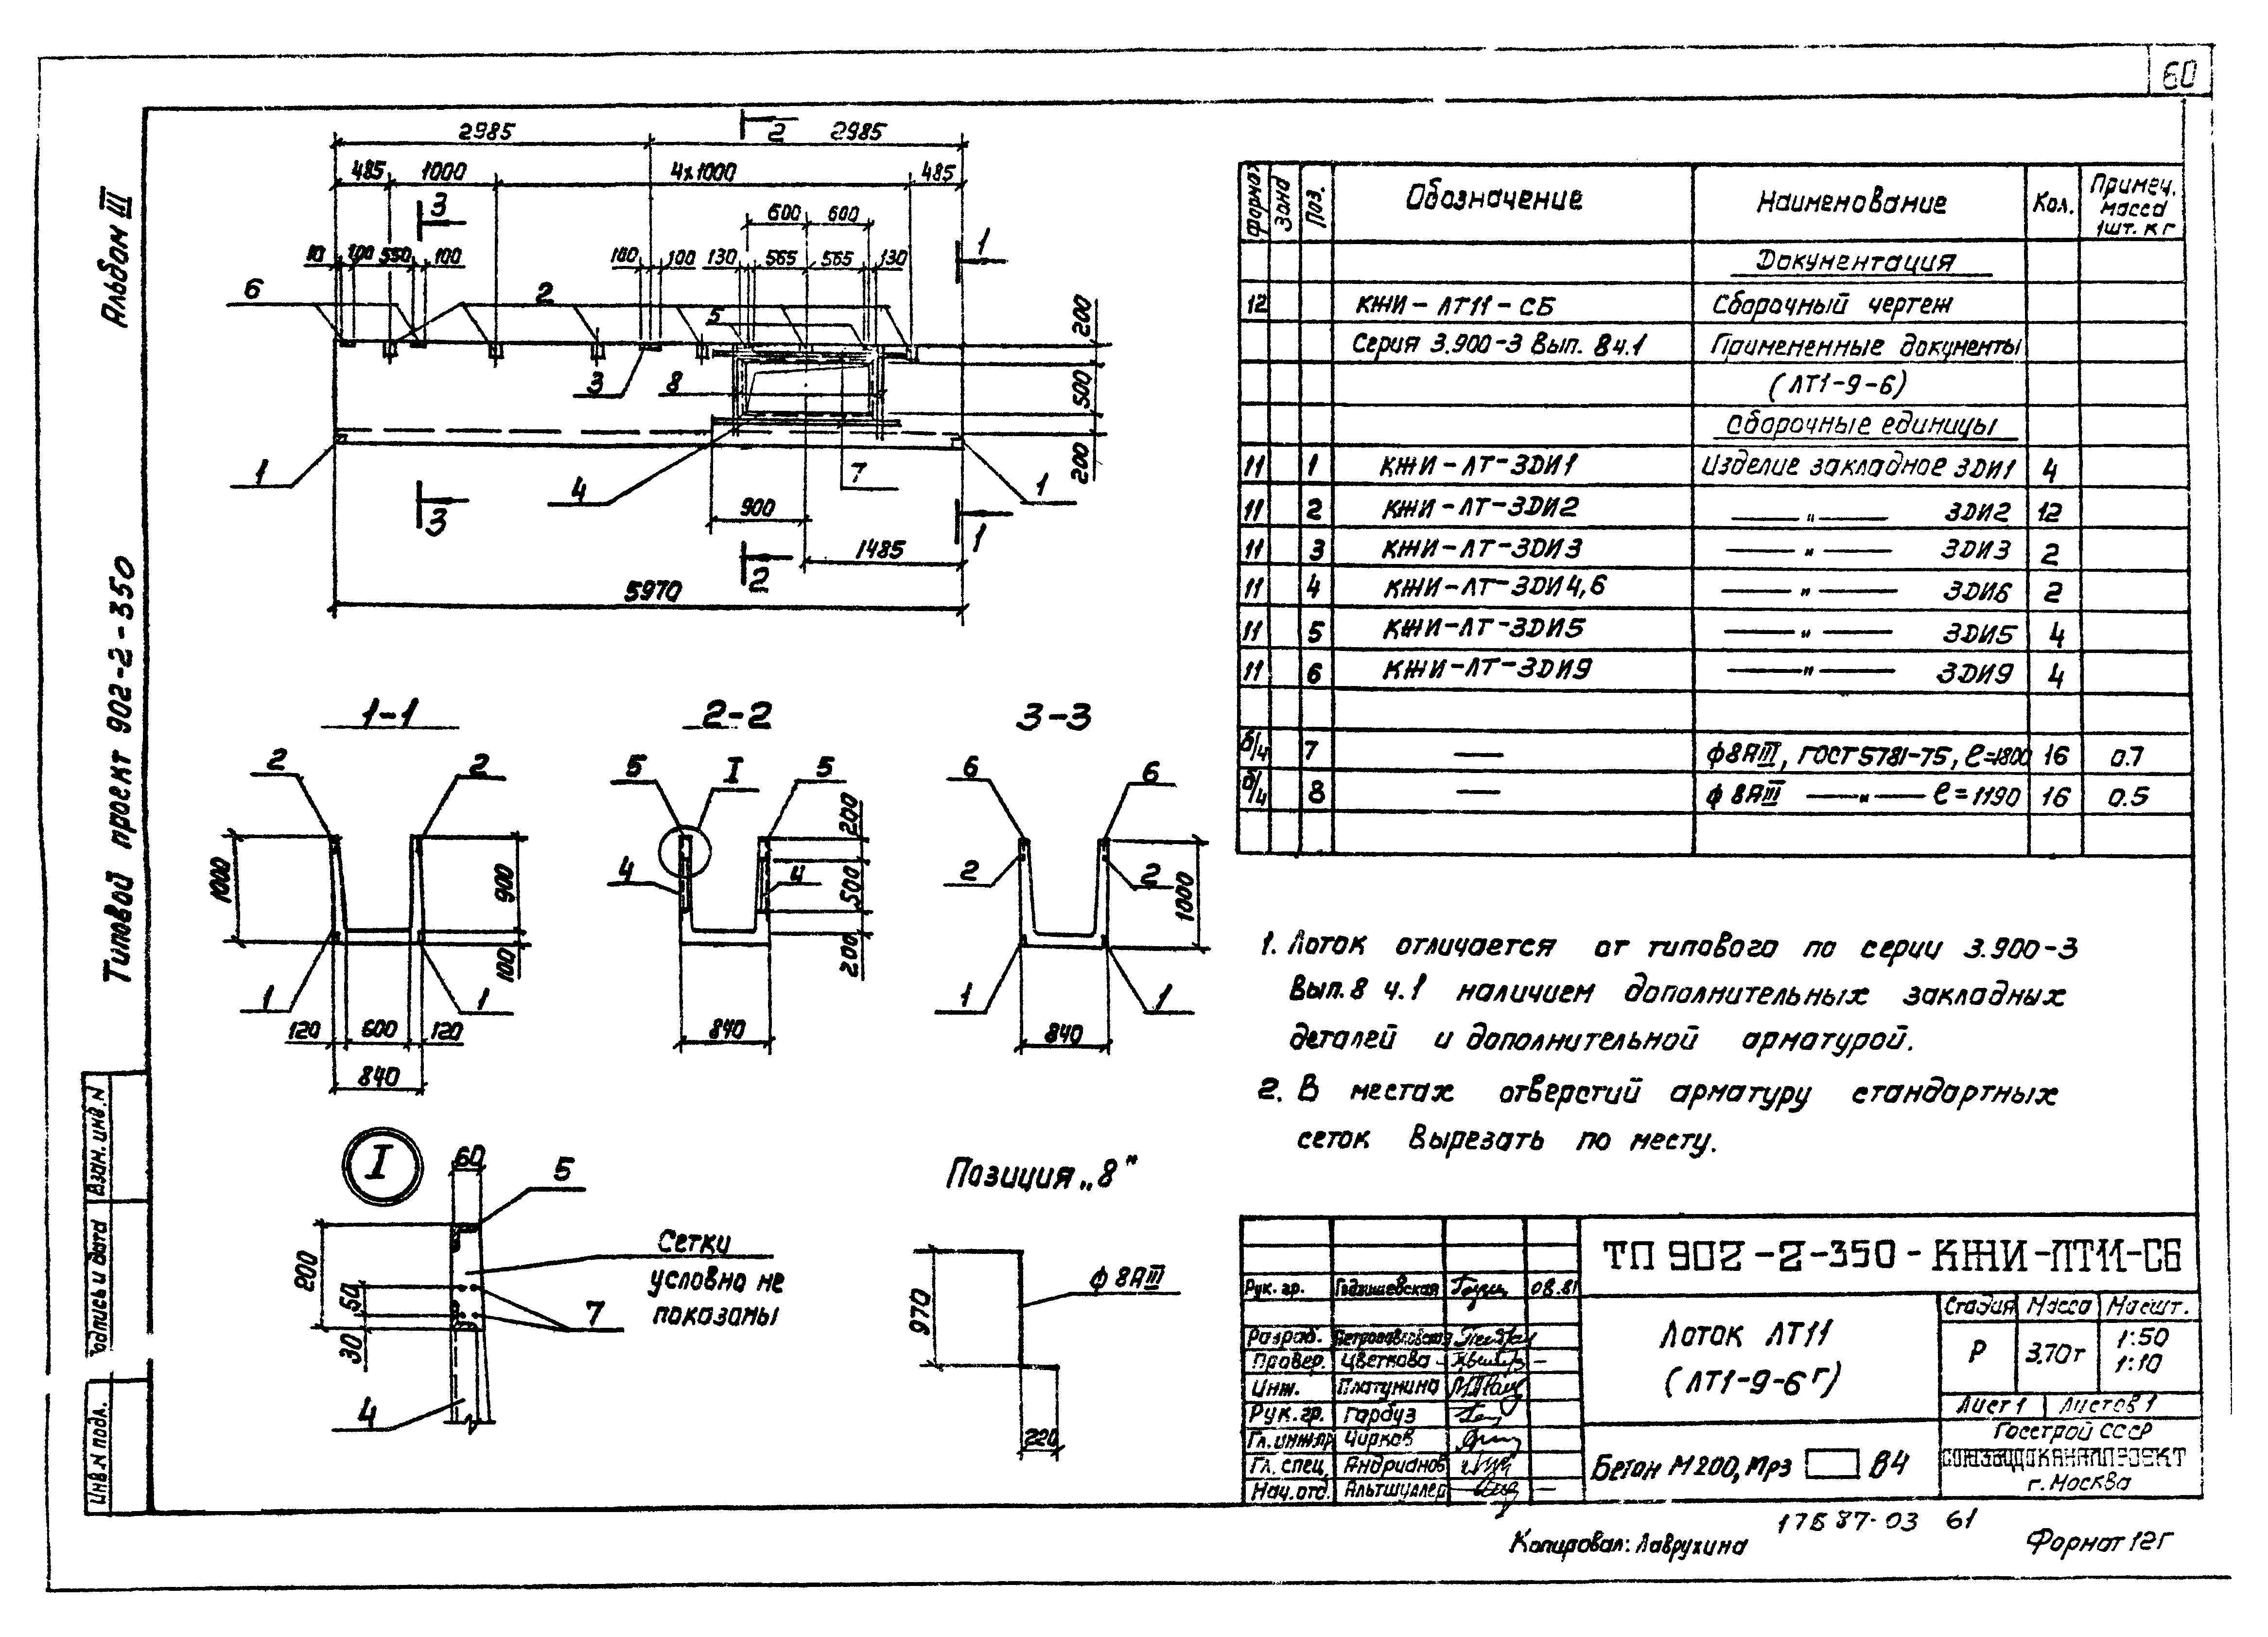 60
Альбом III
Типовой проект 902-2-350
Взам. инв. N
Подпись и дата
Инв. N подл.
2985 2 2985
485 1000 4х1000 485
3 600 600 1
10 100 550 100 100 100 130 565 565 130
6 2 5 200
3 8 500
1 4 7 1 200
3 900 1
2 1485
5970
1-1 2-2 3-3
2 2 5 I 5 6 6
1000 900 4 4 200 500 2 2 1000
100 200
1 1 1 1
120 600 120 840 840
840
I 60 5
Сетки
условно не
показаны
200 50 30
7
4
Позиция „8"
970 ф8АIII
220
Формат Зона Поз. Обозначение Наименование Кол. Примеч. масса 1шт. кг
Документация
12 КЖИ-ЛТ11-СБ Сборочный чертеж
Серия 3.900-3 Вып. 8ч.1 Примененные документы
(ЛТ1-9-6)
Сборочные единицы
11 1 КЖИ-ЛТ-ЗДИ1 Изделие закладное ЗДИ1 4
11 2 КЖИ-ЛТ-ЗДИ2 —"— ЗДИ2 12
11 3 КЖИ-ЛТ-ЗДИ3 —"— ЗДИ3 2
11 4 КЖИ-ЛТ-ЗДИ4,6 —"— ЗДИ6 2
11 5 КЖИ-ЛТ-ЗДИ5 —"— ЗДИ5 4
11 6 КЖИ-ЛТ-ЗДИ9 —"— ЗДИ9 4
б/ч 7 — ф8АIII, ГОСТ 5781-75, ℓ=1800 16 0.7
б/ч 8 — ф8АIII —"— ℓ=1190 16 0.5
1. Лоток отличается от типового по серии 3.900-3
Вып.8 ч.1 наличием дополнительных закладных
деталей и дополнительной арматурой.
2. В местах отверстий арматуру стандартных
сеток вырезать по месту.
ТП 902-2-350-КЖИ-ЛТ11-СБ
Рук. гр. 08.81
Разраб.
Провер. Цветкова
Инж. Платунина
Рук. гр. Гарбуз
Гл. инж.пр Чирков
Гл. спец. Андрианов
Нач. отд. Альтшуллер
Лоток ЛТ11
(ЛТ1-9-6г)
Бетон М200, Мрз В4
Стадия Масса Масшт.
Р 3.70т 1:50
1:10
Лист 1 Листов 1
Госстрой СССР
СОЮЗВОДОКАНАЛПРОЕКТ
г. Москва
17687-03 61
Копировал: Лаврухина Формат 12г